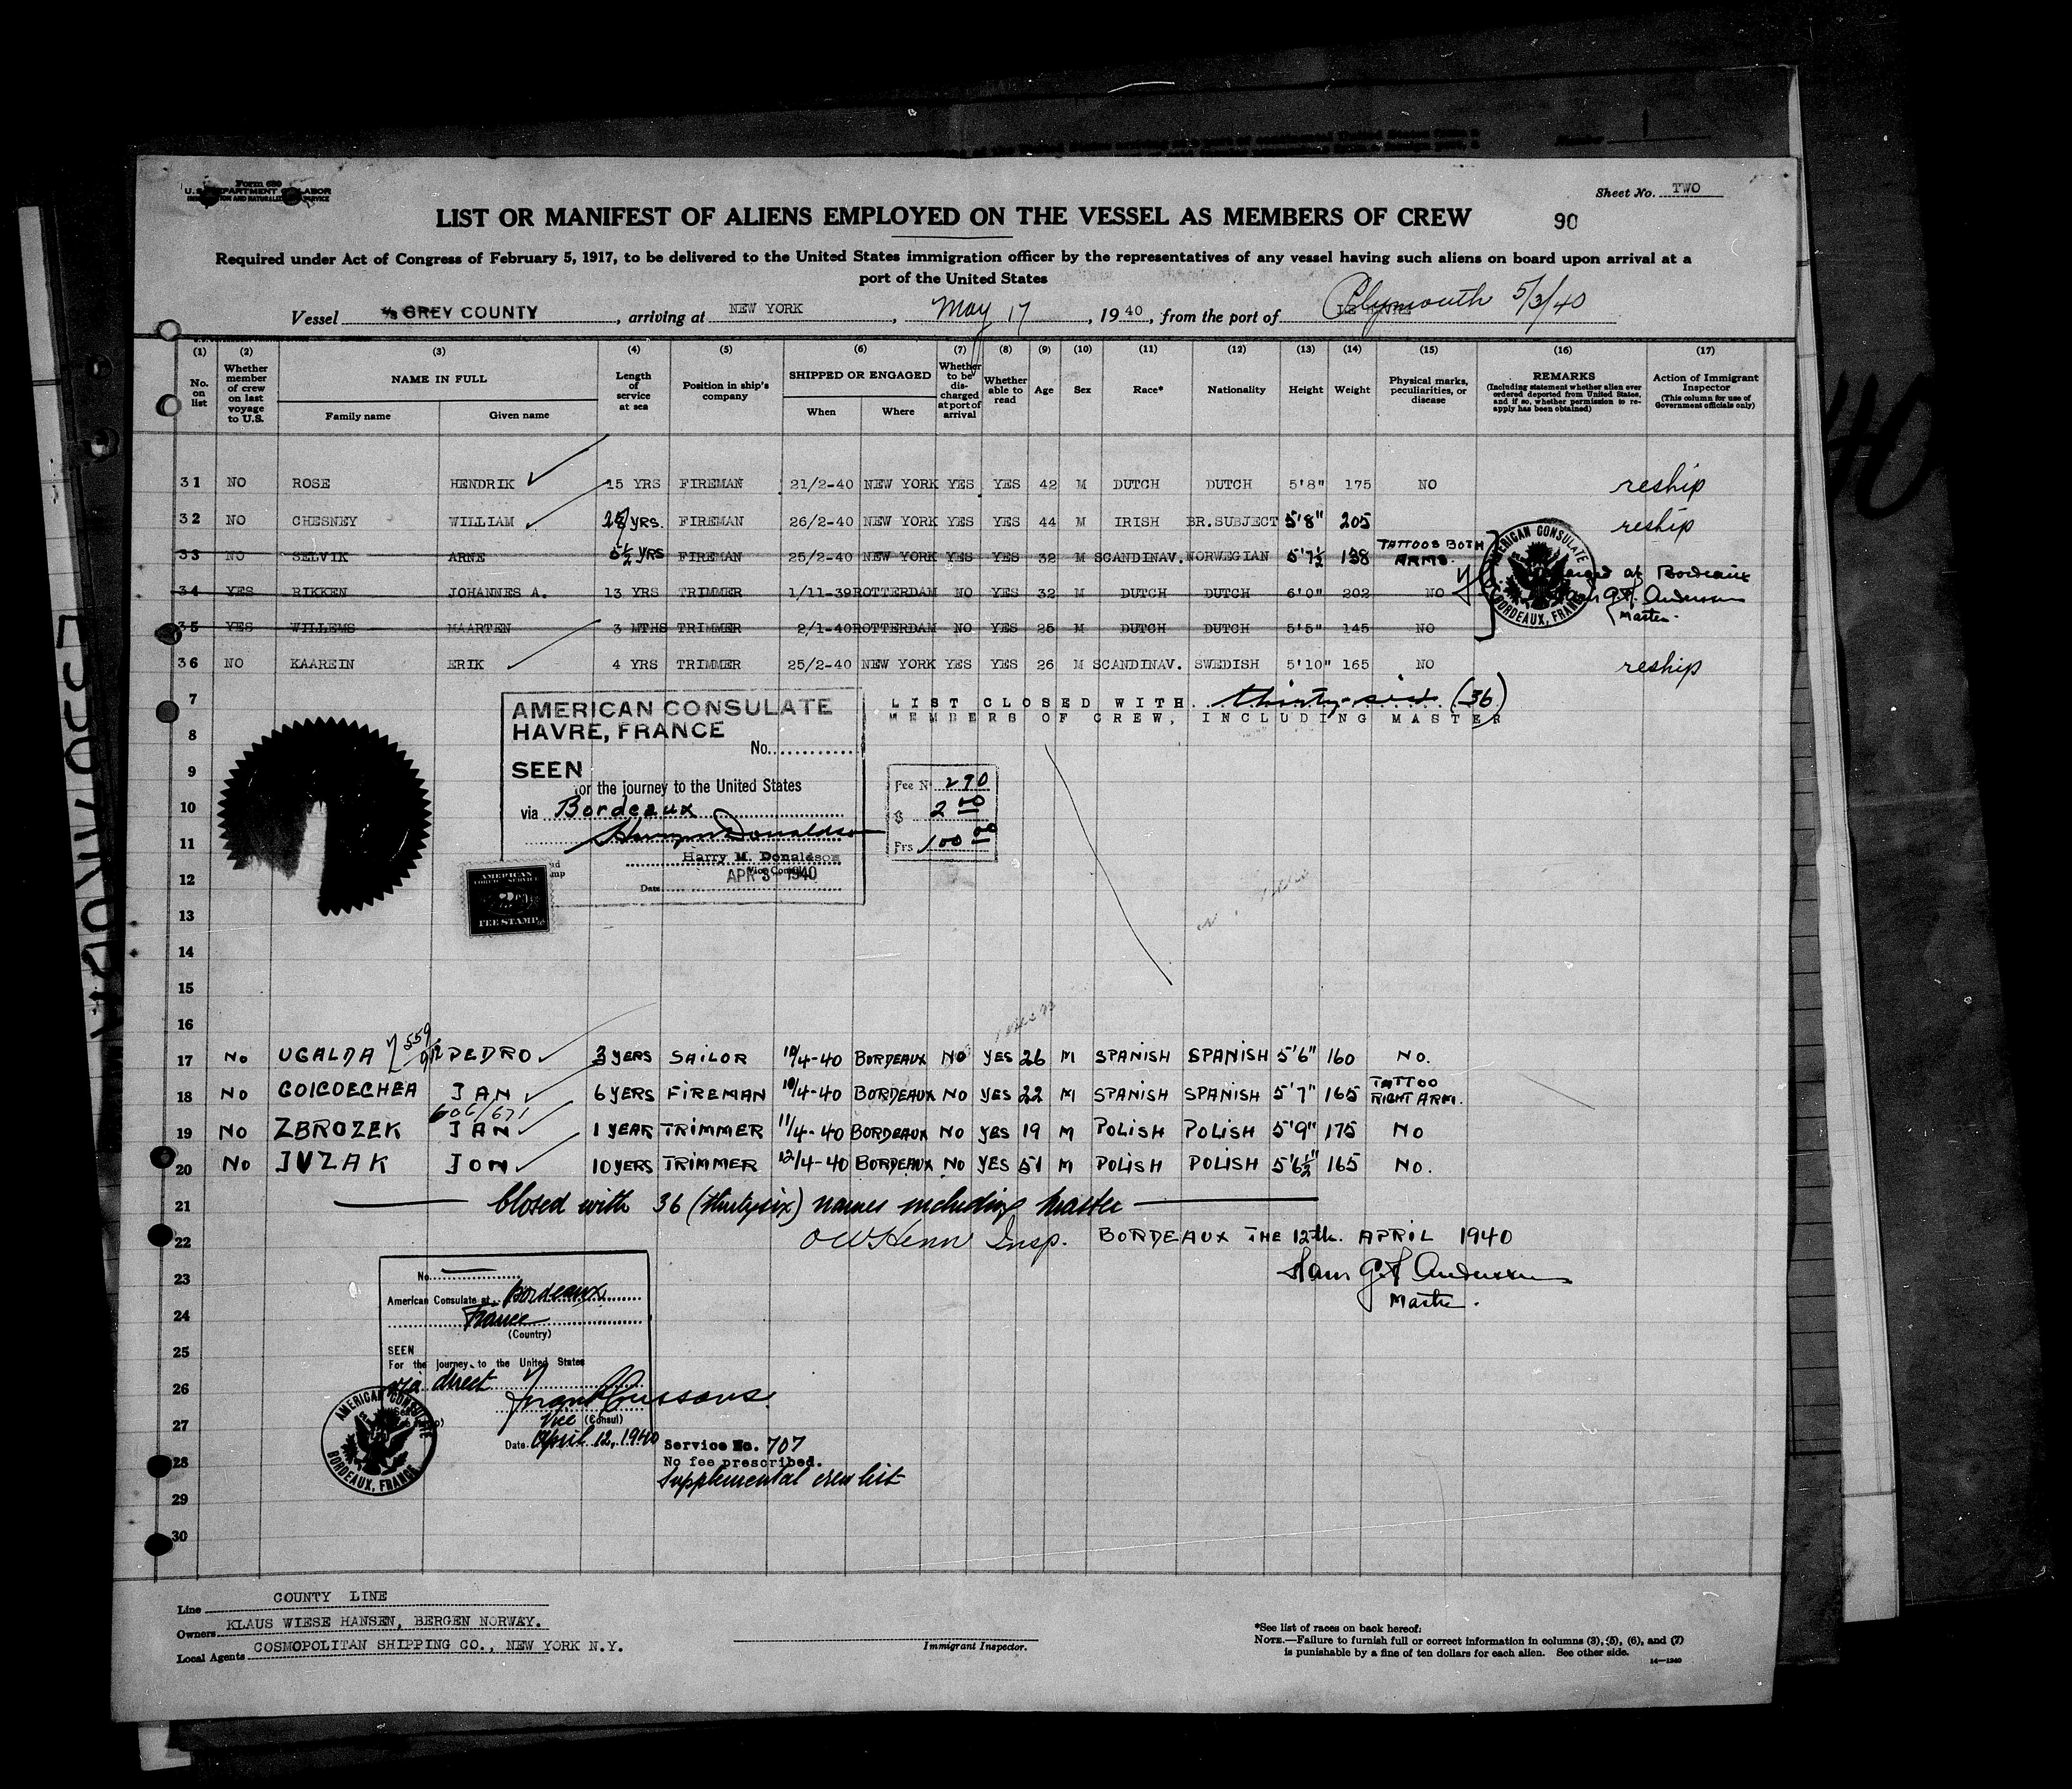 Form 680
U.S. DEPARTMENT OF LABOR
IMMIGRATION AND NATURALIZATION SERVICE
Sheet No. TWO
LIST OR MANIFEST OF ALIENS EMPLOYED ON THE VESSEL AS MEMBERS OF CREW
90
Required under Act of Congress of February 5, 1917, to be delivered to the United States immigration officer by the representatives of any vessel having such aliens on board upon arrival at a
port of the United States
Vessel S/S GREY COUNTY, arriving at NEW YORK, May 17, 1940, from the port of LE HAVRE Plymouth 5/3/40
(1) (2) (3) (4) (5) (6) (7) (8) (9) (10) (11) (12) (13) (14) (15) (16) (17)
No. on list
Whether member of crew on last voyage to U.S.
NAME IN FULL
Family name
Given name
Length of service at sea
Position in ship's company
SHIPPED OR ENGAGED
When
Where
Whether to be discharged at port of arrival
Whether able to read
Age
Sex
Race*
Nationality
Height
Weight
Physical marks, peculiarities, or disease
REMARKS
(Including statement whether alien ever ordered deported from United States, and if so, whether permission to re-apply has been obtained)
Action of Immigrant Inspector
(This column for use of Government officials only)
31 NO ROSE HENDRIK 15 YRS FIREMAN 21/2-40 NEW YORK YES YES 42 M DUTCH DUTCH 5'8" 175 NO reship
32 NO CHESNEY WILLIAM YRS. FIREMAN 26/2-40 NEW YORK YES YES 44 M IRISH BR.SUBJECT 5'8" 205 reship
33 NO SELVIK ARNE 5½ YRS FIREMAN 25/2-40 NEW YORK YES YES 32 M SCANDINAV. NORWEGIAN 5'7½ 138 TATTOOS BOTH ARMS.
34 YES RIKKEN JOHANNES A. 13 YRS TRIMMER 1/11-39 ROTTERDAM NO YES 32 M DUTCH DUTCH 6'0" 202 NO
35 YES WILLEMS MAARTEN 3 MTHS TRIMMER 2/1-40 ROTTERDAM NO YES 25 M DUTCH DUTCH 5'5" 145 NO
at Bordeaux
G.F. Andersen
Master.
AMERICAN CONSULATE
BORDEAUX, FRANCE
36 NO KAAREIN ERIK 4 YRS TRIMMER 25/2-40 NEW YORK YES YES 26 M SCANDINAV. SWEDISH 5'10" 165 NO reship
7
LIST CLOSED WITH thirty-six (36)
MEMBERS OF CREW, INCLUDING MASTER
8
9
10
11
12
13
14
15
16
AMERICAN CONSULATE
HAVRE, FRANCE
No.
SEEN
for the journey to the United States
via Bordeaux
Harry M. Donaldson
Harry M. Donaldson
Vice Consul
Date APR 3 1940
AMERICAN
FOREIGN SERVICE
FEE STAMP
Fee No 290
$ 2 00
Frs 100 00
17 No UGALDA 559/912 PEDRO 3 YERS SAILOR 10/4-40 BORDEAUX NO YES 26 M SPANISH SPANISH 5'6" 160 NO.
18 No GOICOECHEA JAN 6 YERS FIREMAN 10/4-40 BORDEAUX NO YES 22 M SPANISH SPANISH 5'7" 165 TATTOO RIGHT ARM.
606/671
19 NO ZBROZEK JAN 1 YEAR TRIMMER 11/4-40 BORDEAUX NO YES 19 M POLISH POLISH 5'9" 175 NO
20 No JVZAK JON 10 YERS TRIMMER 12/4-40 BORDEAUX NO YES 51 M POLISH POLISH 5'6½" 165 NO.
21 Closed with 36 (thirtysix) names including Master
22 Insp. BORDEAUX THE 12th. APRIL 1940
23 Hans G.F. Andersen
Master.
24
25
26
27
28
29
30
No.
American Consulate at Bordeaux,
France
(Country)
SEEN
For the journey to the United States
via direct
Vice (Consul)
Date April 12, 1940
AMERICAN CONSULATE
BORDEAUX, FRANCE
Service No. 707
No fee prescribed.
Supplemental crew list
Line COUNTY LINE
Owners KLAUS WIESE HANSEN, BERGEN NORWAY.
Local Agents COSMOPOLITAN SHIPPING CO., NEW YORK N.Y.
Immigrant Inspector.
*See list of races on back hereof.
NOTE.—Failure to furnish full or correct information in columns (3), (5), (6), and (7)
is punishable by a fine of ten dollars for each alien. See other side.
14—1240